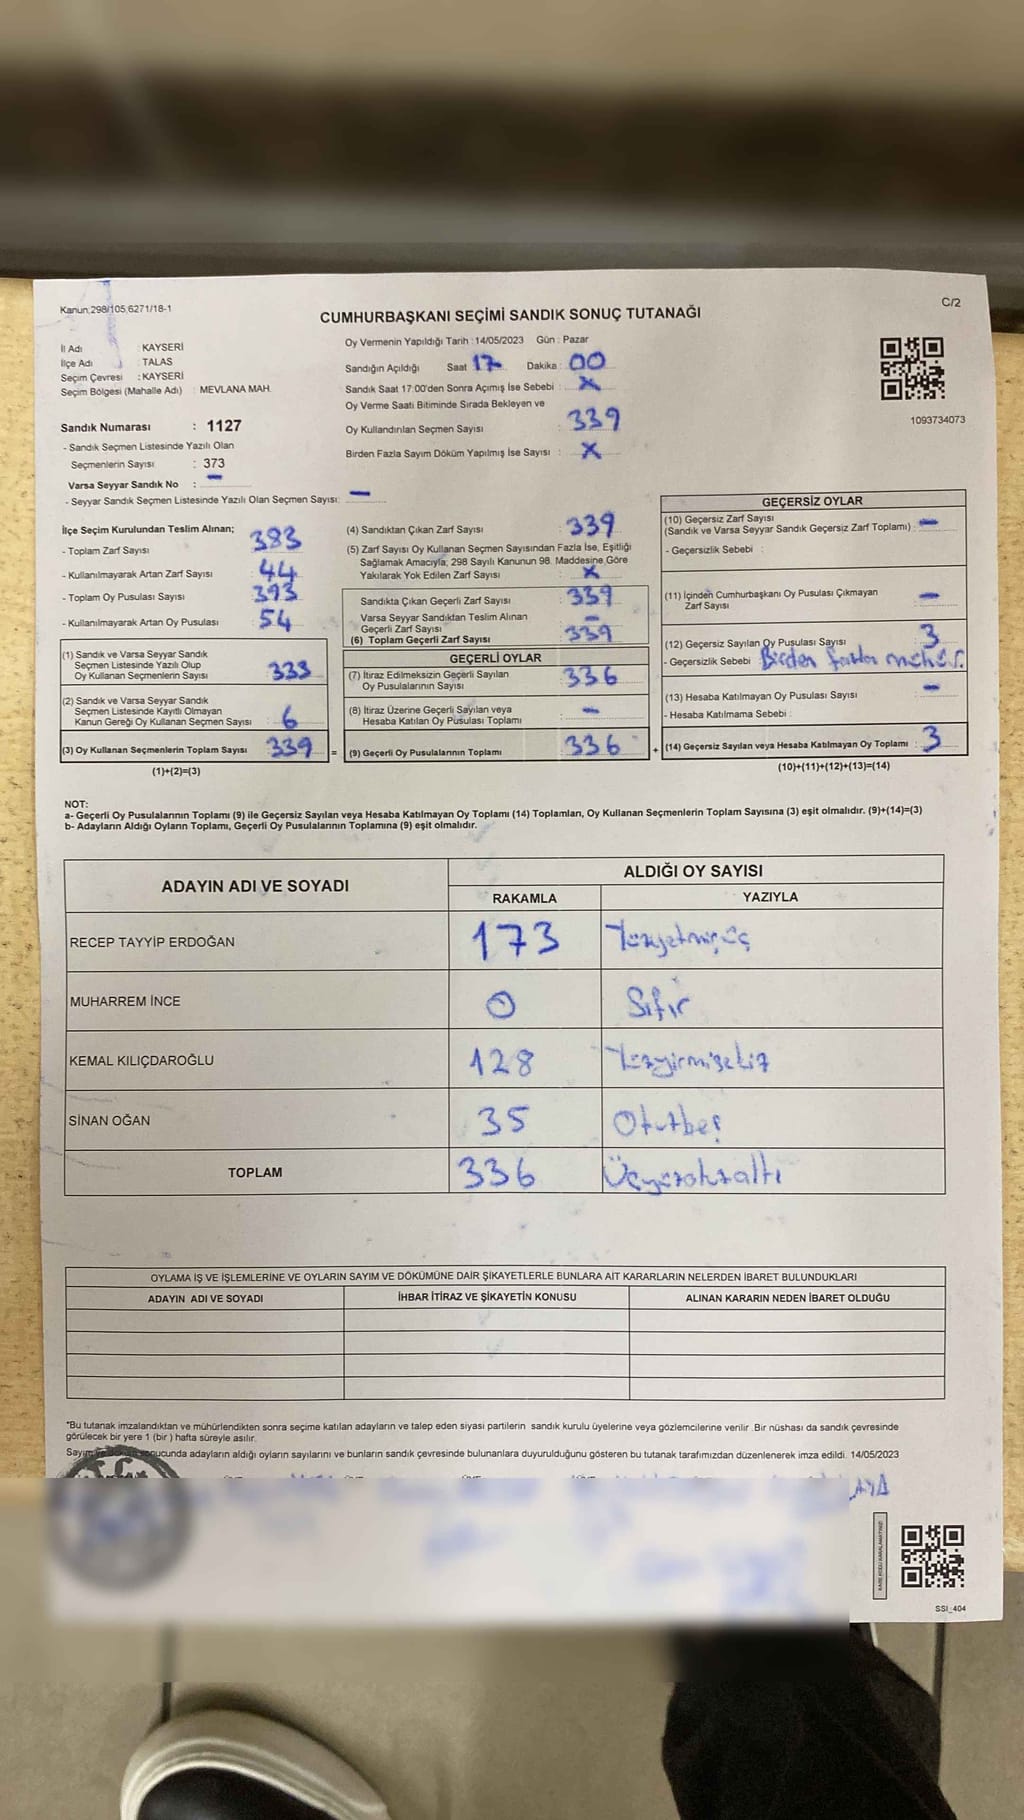 Kanun:298/105,6271/18-1
C/2
CUMHURBAŞKANI SEÇİMİ SANDIK SONUÇ TUTANAĞI
İl Adı : KAYSERİ
İlçe Adı : TALAS
Seçim Çevresi : KAYSERİ
Seçim Bölgesi (Mahalle Adı) : MEVLANA MAH.
Sandık Numarası : 1127
- Sandık Seçmen Listesinde Yazılı Olan
Seçmenlerin Sayısı : 373
Varsa Seyyar Sandık No : —
- Seyyar Sandık Seçmen Listesinde Yazılı Olan Seçmen Sayısı: —
Oy Vermenin Yapıldığı Tarih : 14/05/2023 Gün : Pazar
Sandığın Açıldığı Saat 17 Dakika : 00
Sandık Saat 17:00'den Sonra Açımış İse Sebebi : X
Oy Verme Saati Bitiminde Sırada Bekleyen ve
Oy Kullandırılan Seçmen Sayısı : 339
Birden Fazla Sayım Döküm Yapılmış İse Sayısı : X
1093734073
İlçe Seçim Kurulundan Teslim Alınan;
- Toplam Zarf Sayısı 383
- Kullanılmayarak Artan Zarf Sayısı 44
- Toplam Oy Pusulası Sayısı 393
- Kullanılmayarak Artan Oy Pusulası 54
(1) Sandık ve Varsa Seyyar Sandık
Seçmen Listesinde Yazılı Olup
Oy Kullanan Seçmenlerin Sayısı : 333
(2) Sandık ve Varsa Seyyar Sandık
Seçmen Listesinde Kayıtlı Olmayan
Kanun Gereği Oy Kullanan Seçmen Sayısı : 6
(3) Oy Kullanan Seçmenlerin Toplam Sayısı : 339 =
(1)+(2)=(3)
(4) Sandıktan Çıkan Zarf Sayısı : 339
(5) Zarf Sayısı Oy Kullanan Seçmen Sayısından Fazla İse, Eşitliği
Sağlamak Amacıyla; 298 Sayılı Kanunun 98. Maddesine Göre
Yakılarak Yok Edilen Zarf Sayısı : X
Sandıkta Çıkan Geçerli Zarf Sayısı : 339
Varsa Seyyar Sandıktan Teslim Alınan
Geçerli Zarf Sayısı : —
(6) Toplam Geçerli Zarf Sayısı : 339
GEÇERLİ OYLAR
(7) İtiraz Edilmeksizin Geçerli Sayılan
Oy Pusulalarının Sayısı : 336
(8) İtiraz Üzerine Geçerli Sayılan veya
Hesaba Katılan Oy Pusulası Toplamı : —
(9) Geçerli Oy Pusulalarının Toplamı : 336 +
GEÇERSİZ OYLAR
(10) Geçersiz Zarf Sayısı
(Sandık ve Varsa Seyyar Sandık Geçersiz Zarf Toplamı) : —
- Geçersizlik Sebebi :
(11) İçinden Cumhurbaşkanı Oy Pusulası Çıkmayan
Zarf Sayısı : —
(12) Geçersiz Sayılan Oy Pusulası Sayısı : 3
- Geçersizlik Sebebi : Birden fazla mühür.
(13) Hesaba Katılmayan Oy Pusulası Sayısı : —
- Hesaba Katılmama Sebebi :
(14) Geçersiz Sayılan veya Hesaba Katılmayan Oy Toplamı : 3
(10)+(11)+(12)+(13)=(14)
NOT:
a- Geçerli Oy Pusulalarının Toplamı (9) ile Geçersiz Sayılan veya Hesaba Katılmayan Oy Toplamı (14) Toplamları, Oy Kullanan Seçmenlerin Toplam Sayısına (3) eşit olmalıdır. (9)+(14)=(3)
b- Adayların Aldığı Oyların Toplamı, Geçerli Oy Pusulalarının Toplamına (9) eşit olmalıdır.
ADAYIN ADI VE SOYADI ALDIĞI OY SAYISI
RAKAMLA YAZIYLA
RECEP TAYYİP ERDOĞAN 173 Yüzyetmişüç
MUHARREM İNCE 0 Sıfır
KEMAL KILIÇDAROĞLU 128 Yüzyirmisekiz
SİNAN OĞAN 35 Otuzbeş
TOPLAM 336 Üçyüzotuzaltı
OYLAMA İŞ VE İŞLEMLERİNE VE OYLARIN SAYIM VE DÖKÜMÜNE DAİR ŞİKAYETLERLE BUNLARA AİT KARARLARIN NELERDEN İBARET BULUNDUKLARI
ADAYIN ADI VE SOYADI İHBAR İTİRAZ VE ŞİKAYETİN KONUSU ALINAN KARARIN NEDEN İBARET OLDUĞU
*Bu tutanak imzalandıktan ve mühürlendikten sonra seçime katılan adayların ve talep eden siyasi partilerin sandık kurulu üyelerine veya gözlemcilerine verilir. Bir nüshası da sandık çevresinde
görülecek bir yere 1 (bir) hafta süreyle asılır.
sonucunda adayların aldığı oyların sayılarını ve bunların sandık çevresinde bulunanlara duyurulduğunu gösteren bu tutanak tarafımızdan düzenlenerek imza edildi. 14/05/2023
KARE KODU KARALAMAYINIZ!
SSI_404